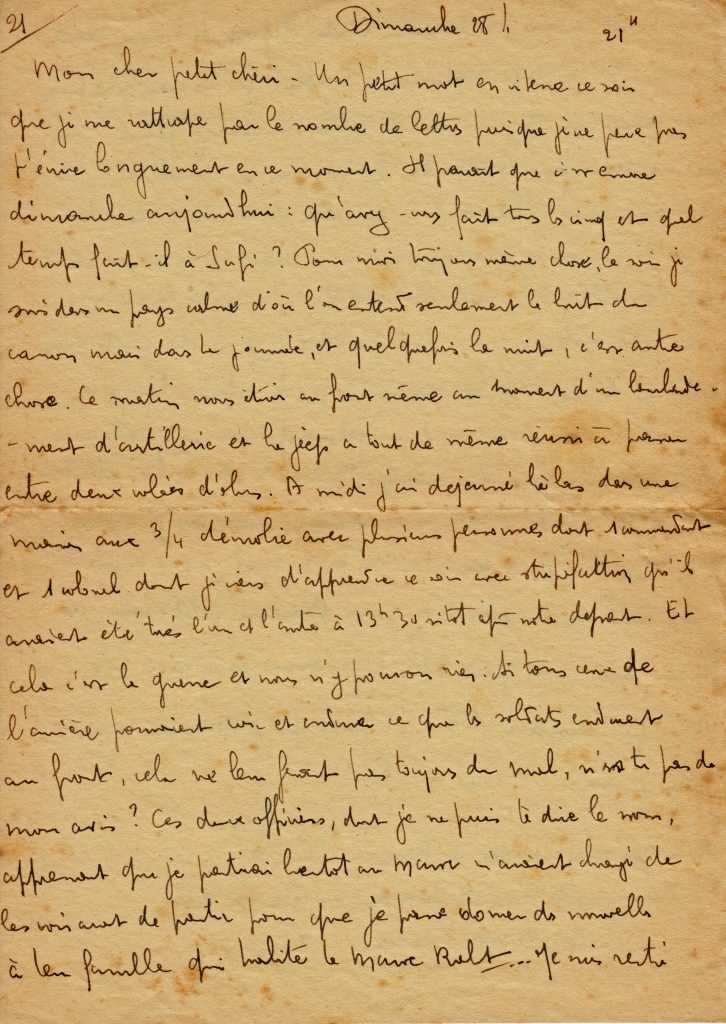 21 Dimanche 28/1 21H
Mon cher petit chéri - Un petit mot en vitesse ce soir
que je me rattrape par le nombre de lettres puisque je ne peux pas
t'écrire longuement en ce moment. Il parait que c'est encore
dimanche aujourd'hui : qu'avez-vous fait tous les cinq et quel
temps fait-il à Safi ? Pour moi toujours même chose, le soir je
suis dans un pays calme d'où l'on entend seulement le bruit du
canon mais dans la journée, et quelquefois la nuit, c'est autre
chose. Ce matin nous étions au front même au moment d'un bombarde-
-ment d'artillerie et la jeep a tout de même réussi à passer
entre deux volées d'obus. A midi j'ai dejeuné là bas dans une
mairie aux 3/4 démolie avec plusieurs personnes dont 1 commandant
et 1 colonel dont je viens d'apprendre ce soir avec stupéfaction qu'ils
avaient été tués l'un et l'autre à 13h30 sitot après notre depart. Et
cela c'est la guerre et nous n'y pouvons rien. Si tous ceux de
l'arrière pouvaient voir et endurer ce que les soldats endurent
au front, cela ne leur ferait pas toujours du mal, n'es tu pas de
mon avis ? Ces deux officiers, dont je ne puis te dire le nom,
apprenant que je partirai bientot au Maroc m'avaient chargé de
les voir avant de partir pour que je puisse donner des nouvelles
à leur famille qui habite le Maroc ... Je suis resté